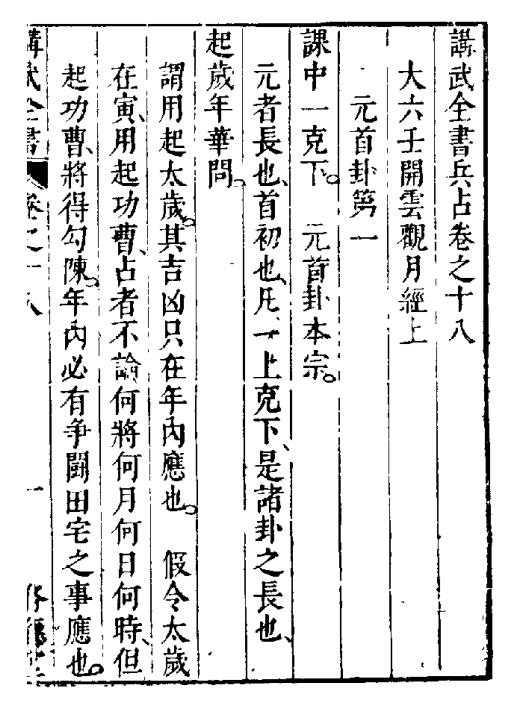 講武全書兵占卷之十八
大六壬開雲觀月經上
元首卦第一
課中一克下。 元首卦本宗。
元者長也、首初也、凡、一上克下、是諸卦之長也、
起歲年華問。
謂用起太歲。其吉凶只在年內應也。 假令太歲
在寅、用起功曹、占者不論何將何月何日何時、但
起功曹、將得勾陳。年內必有爭鬪田宅之事應也。
講武全書 卷之十八 一